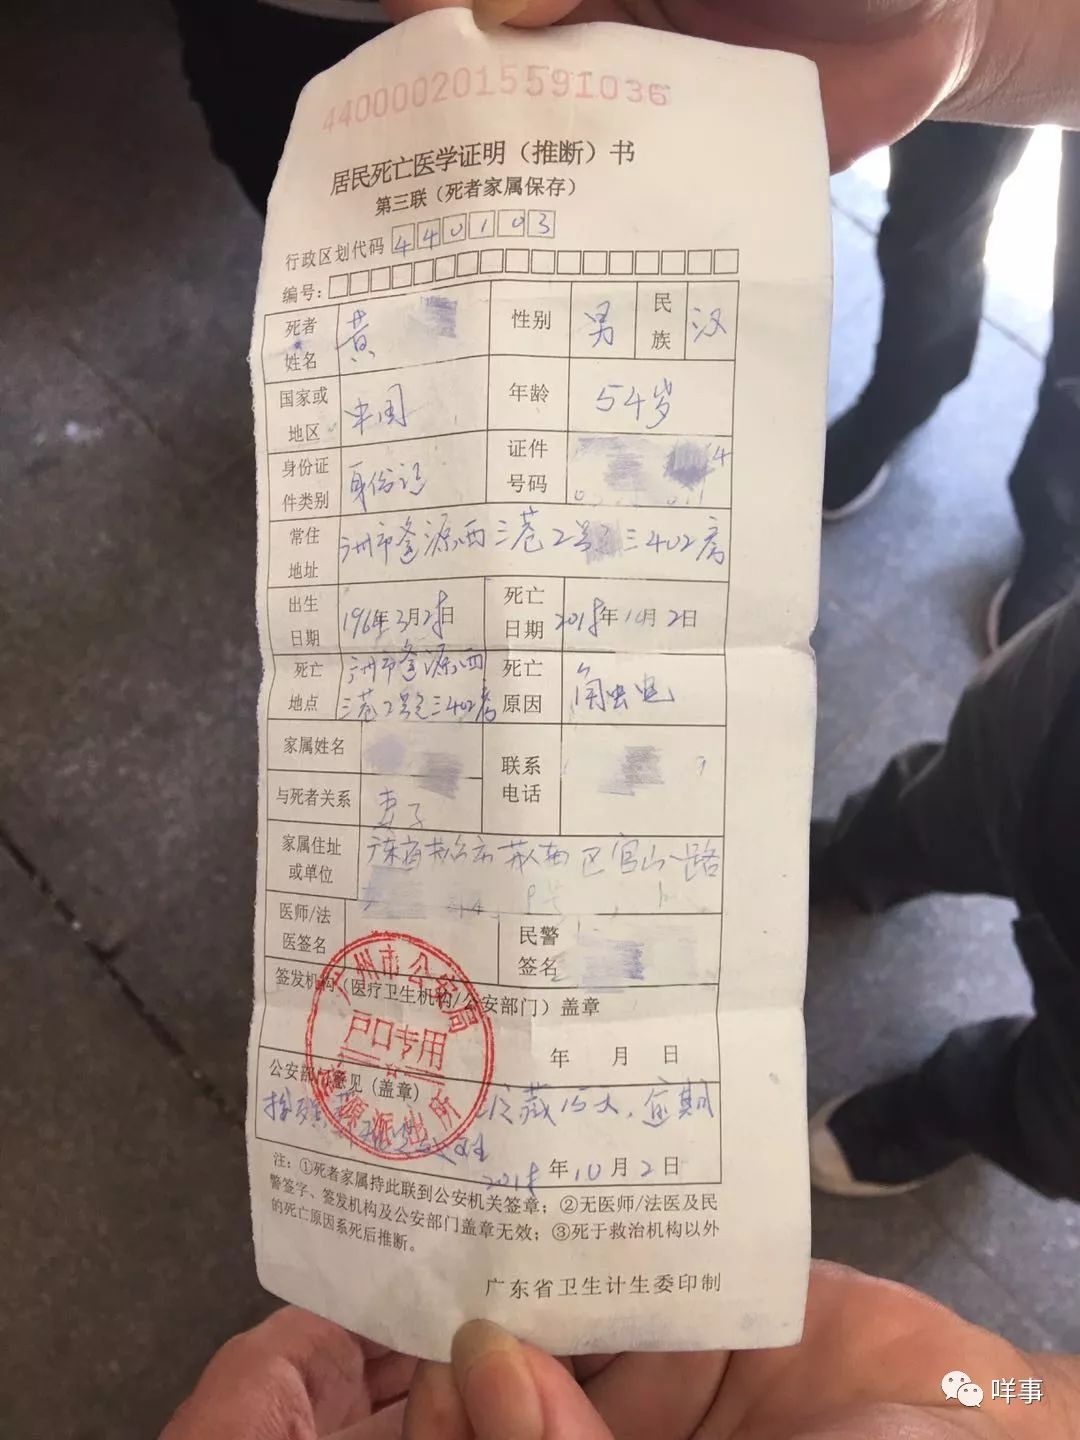 4400002015591036
居民死亡医学证明（推断）书
第三联（死者家属保存）
行政区划代码 440103
编号：
死者姓名 黄 性别 男 民族 汉
国家或地区 中国 年龄 54岁
身份证件类别 身份证 证件号码 4
常住地址 广州市逢源西三巷2号 三402房
出生日期 196年3月28日 死亡日期 2018年10月2日
死亡地点 广州市逢源西三巷2号之三402房 死亡原因 触电
家属姓名 联系电话
与死者关系 妻子
家属住址或单位 广东省茂名市茂南区官山一路
医师/法医签名 民警签名
签发机构（医疗卫生机构/公安部门）盖章
年 月 日
公安部门意见（盖章）
冷藏15天，逾期
2018年10月2日
广州市公安局
户口专用
逢源派出所
注：①死者家属持此联到公安机关签章；②无医师/法医及民
警签字、签发机构及公安部门盖章无效；③死于救治机构以外
的死亡原因系死后推断。
广东省卫生计生委印制
咩事